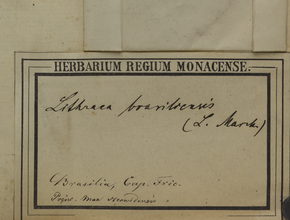 HERBARIUM REGIUM MONACENSE.
Lithraea brasiliensis
(L. March.)
Brasilia, Cap. Frio.